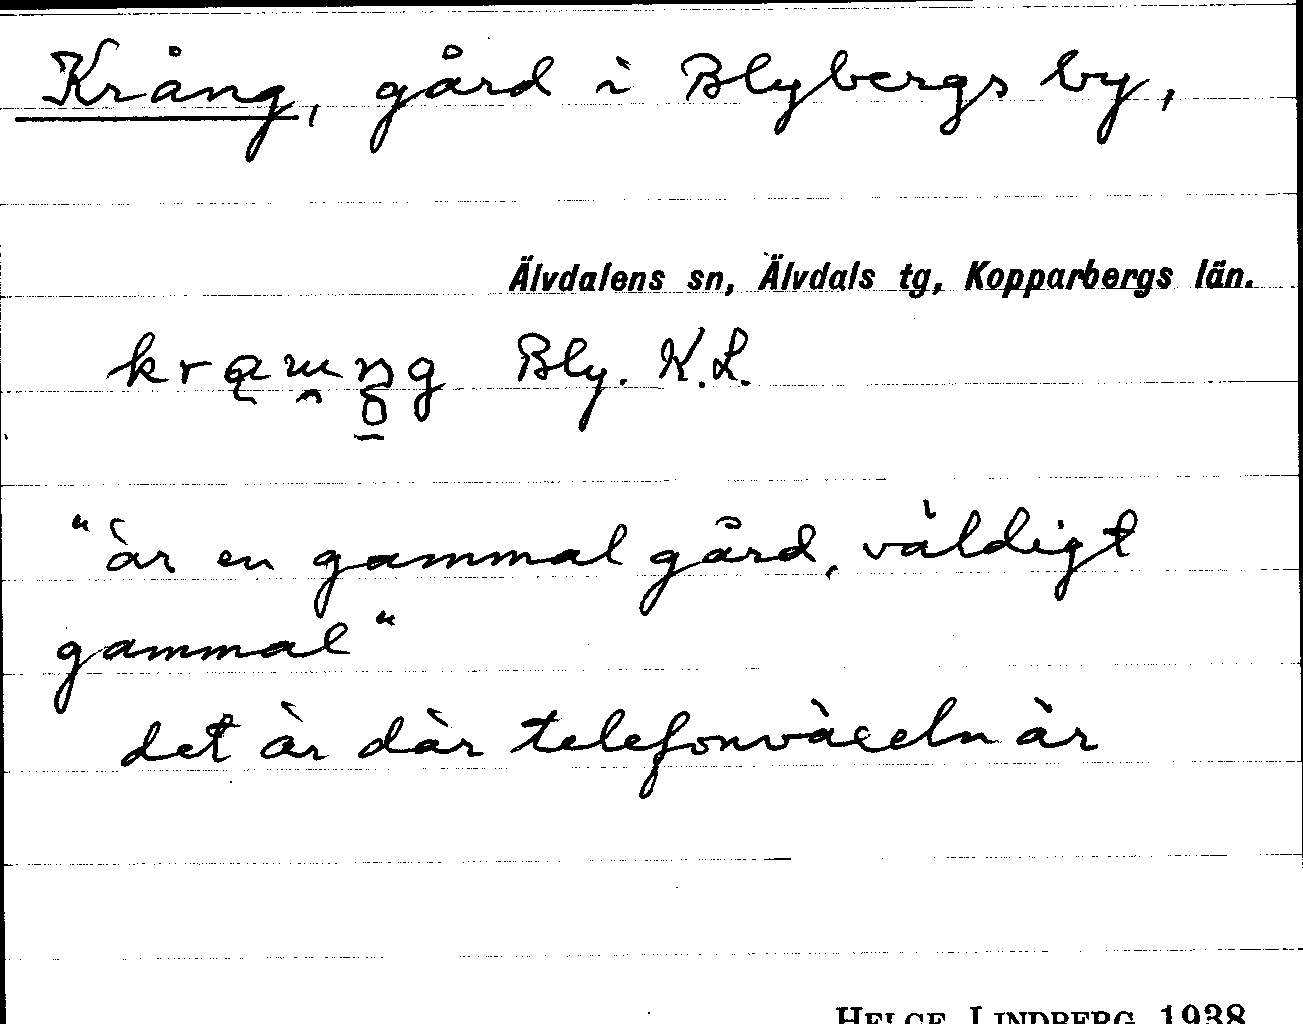 Krång, gård i Blybergs by,
Älvdalens sn, Älvdals tg, Kopparbergs län.
Bly. K.L.
"är en gammal gård, väldigt
gammal"
det är där telefonväxeln är
HELGE LINDBERG 1938